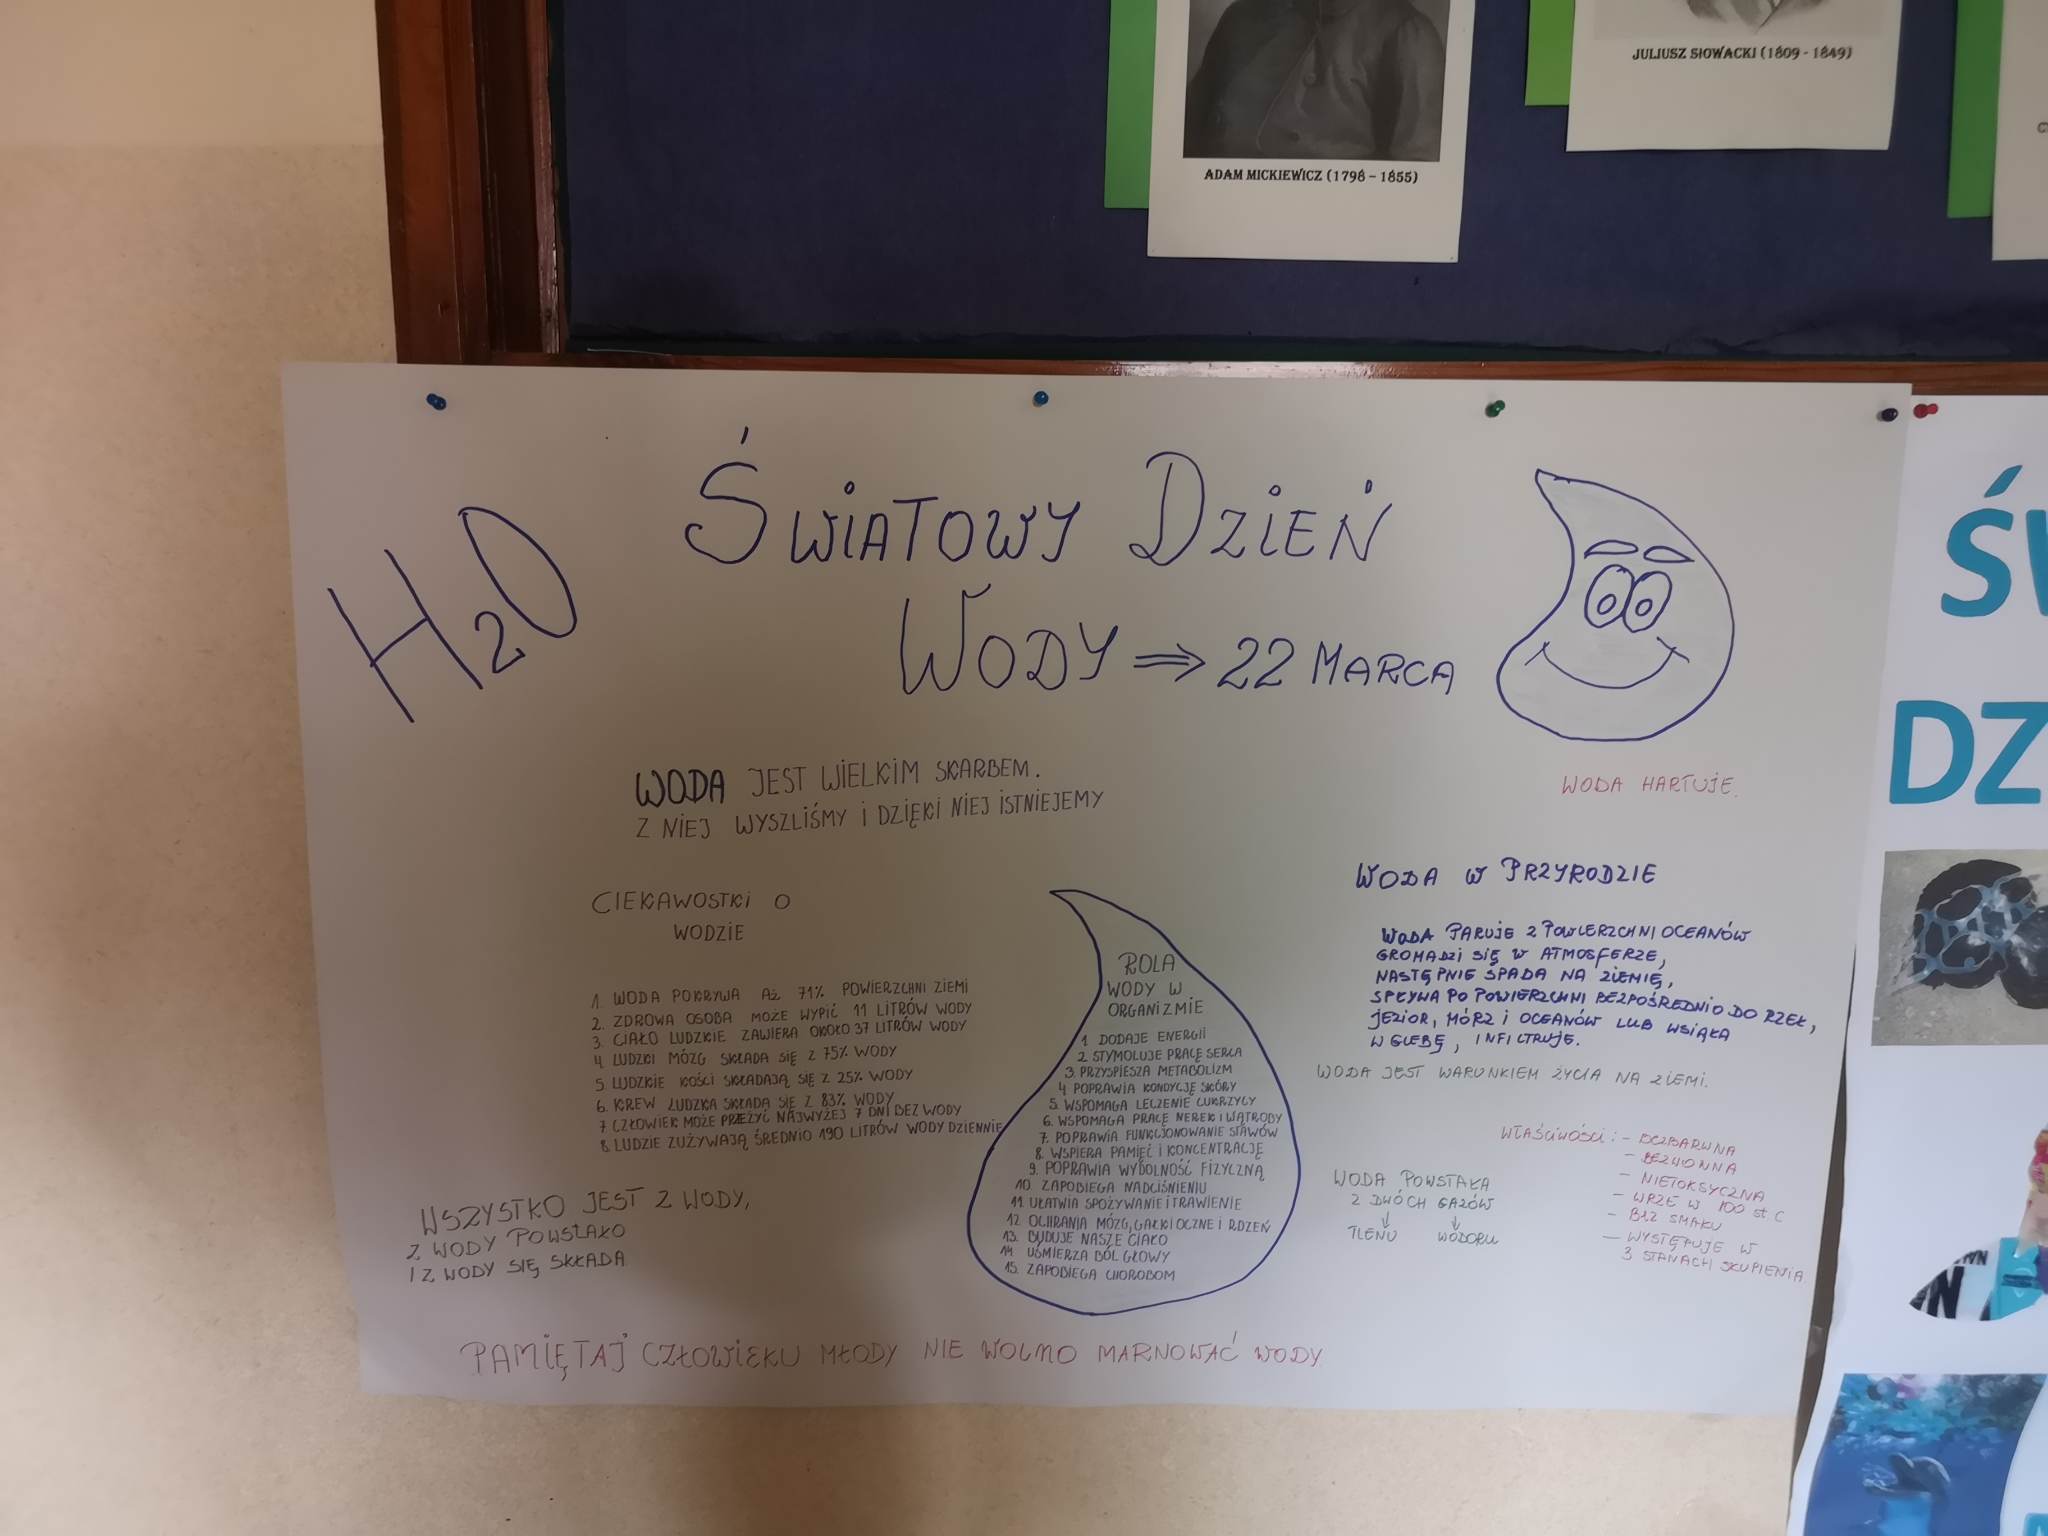 ADAM MICKIEWICZ (1798 – 1855)
JULIUSZ SŁOWACKI (1809 - 1849)
H2O
ŚWIATOWY DZIEŃ
WODY ⇒ 22 MARCA
WODA JEST WIELKIM SKARBEM.
Z NIEJ WYSZLIŚMY I DZIĘKI NIEJ ISTNIEJEMY
WODA HARTUJE.
CIEKAWOSTKI O
WODZIE
1. WODA POKRYWA AŻ 71% POWIERZCHNI ZIEMI
2. ZDROWA OSOBA MOŻE WYPIĆ 11 LITRÓW WODY
3. CIAŁO LUDZKIE ZAWIERA OKOŁO 37 LITRÓW WODY
4 LUDZKI MÓZG SKŁADA SIĘ Z 75% WODY
5 LUDZKIE KOŚCI SKŁADAJĄ SIĘ Z 25% WODY
6. KREW LUDZKA SKŁADA SIĘ Z 83% WODY
7 CZŁOWIEK MOŻE PRZEŻYĆ NAJWYŻEJ 7 DNI BEZ WODY
8. LUDZIE ZUŻYWAJĄ ŚREDNIO 190 LITRÓW WODY DZIENNIE
WSZYSTKO JEST Z WODY,
Z WODY POWSTAŁO
I Z WODY SIĘ SKŁADA
ROLA
WODY W
ORGANIZMIE
1. DODAJE ENERGII
2 STYMOLUJE PRACĘ SERCA
3. PRZYSPIESZA METABOLIZM
4 POPRAWIA KONDYCJĘ SKÓRY
5. WSPOMAGA LECZENIE CUKRZYCY
6. WSPOMAGA PRACĘ NEREK I WĄTROBY
7. POPRAWIA FUNKCJONOWANIE STAWÓW
8. WSPIERA PAMIĘĆ I KONCENTRACJĘ
9. POPRAWIA WYDOLNOŚĆ FIZYCZNĄ
10. ZAPOBIEGA NADCIŚNIENIU
11. UŁATWIA SPOŻYWANIE I TRAWIENIE
12. OCHRANIA MÓZG, GAŁKI OCZNE I RDZEŃ
13. BUDUJE NASZE CIAŁO
14. UŚMIERZA BÓL GŁOWY
15. ZAPOBIEGA CHOROBOM
WODA W PRZYRODZIE
WODA PARUJE Z POWIERZCHNI OCEANÓW
GROMADZI SIĘ W ATMOSFERZE,
NASTĘPNIE SPADA NA ZIEMIĘ,
SPŁYWA PO POWIERZCHNI BEZPOŚREDNIO DO RZEK,
JEZIOR, MÓRZ I OCEANÓW LUB WSIĄKA
W GLEBĘ, INFILTRUJE.
WODA JEST WARUNKIEM ŻYCIA NA ZIEMI.
WODA POWSTAŁA
Z DWÓCH GAZÓW
↓ ↓
TLENU WODORU
WŁAŚCIWOŚCI: - BEZBARWNA
- BEZWONNA
- NIETOKSYCZNA
- WRZE W 100 st C
- BEZ SMAKU
- WYSTĘPUJE W
3 STANACH SKUPIENIA
PAMIĘTAJ CZŁOWIEKU MŁODY NIE WOLNO MARNOWAĆ WODY
ŚW
DZ